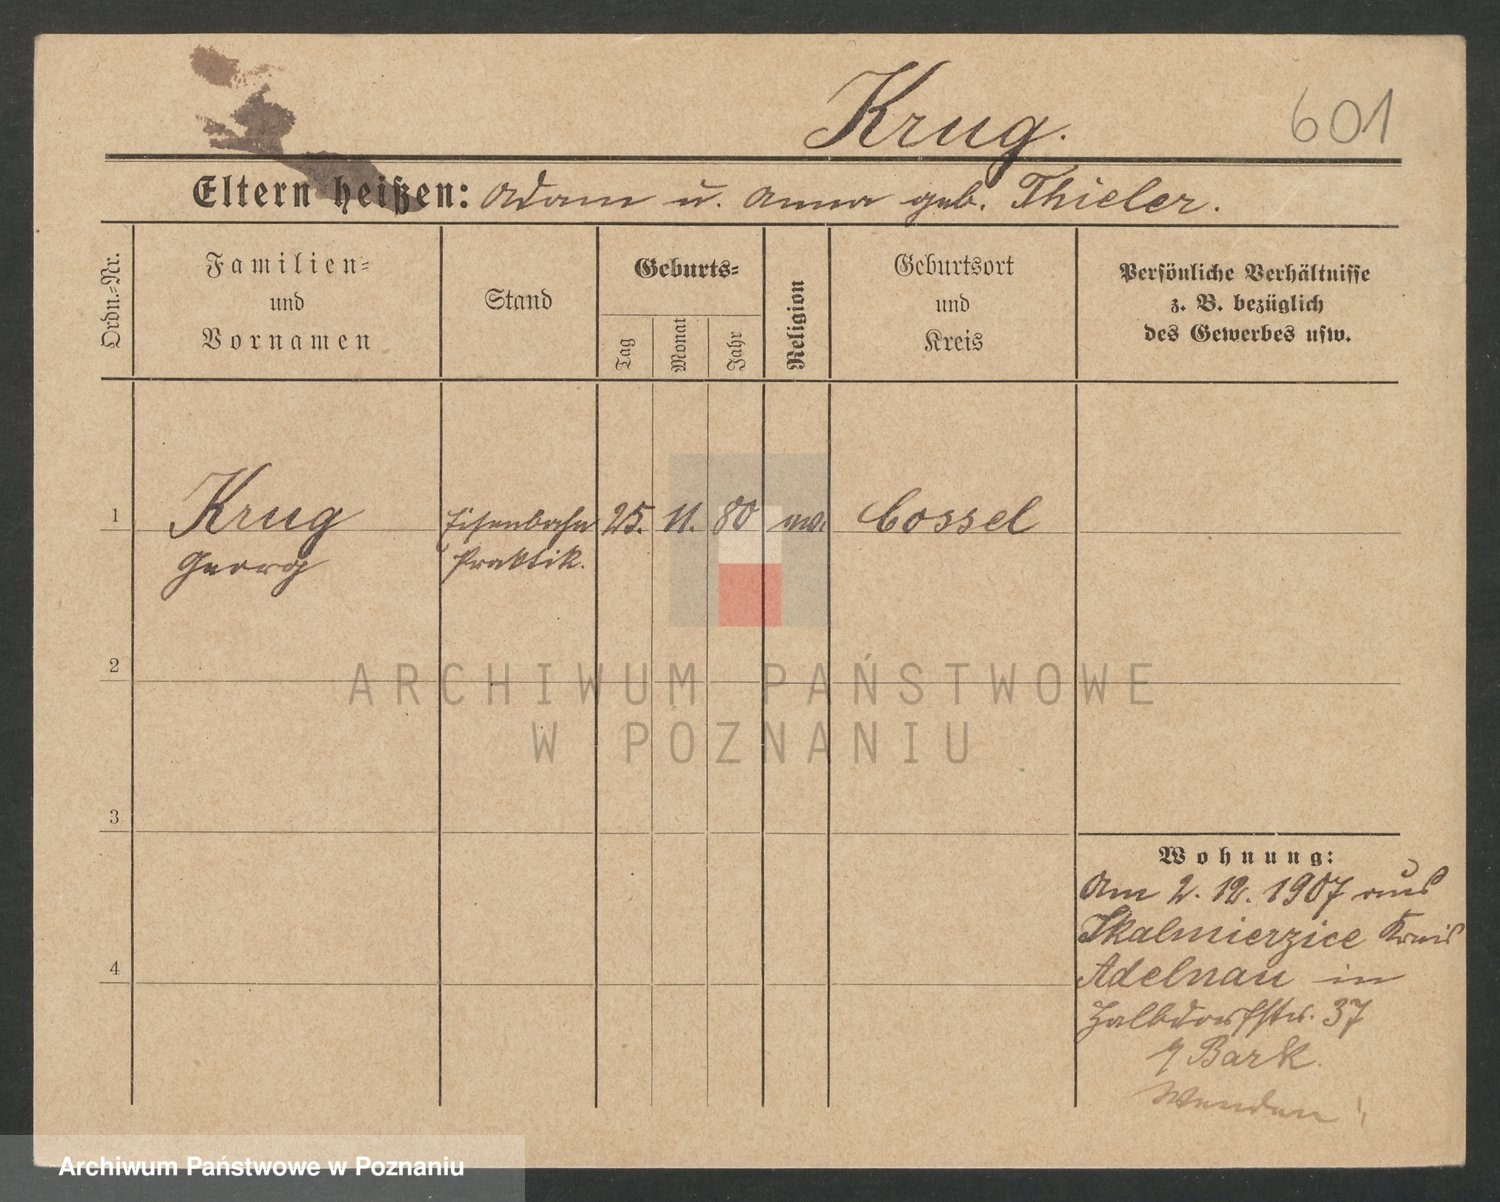 Krug.
601
Eltern heißen: Adam u. Anna geb. Thieler.
Ordn.-Nr.
Familien-
und
Vornamen
Stand
Geburts-
Tag
Monat
Jahr
Religion
Geburtsort
und
Kreis
Persönliche Verhältnisse
z. B. bezüglich
des Gewerbes usw.
1
Krug
Georg
Eisenbahn
Praktik.
25.
11.
80
Cossel
2
ARCHIWUM PAŃSTWOWE
W POZNANIU
3
4
Wohnung:
Am 2. 12. 1907 aus
Skalmierzice Kreis
Adelnau in
Halbdorfstr. 37
Bark.
Wenden!
Archiwum Państwowe w Poznaniu